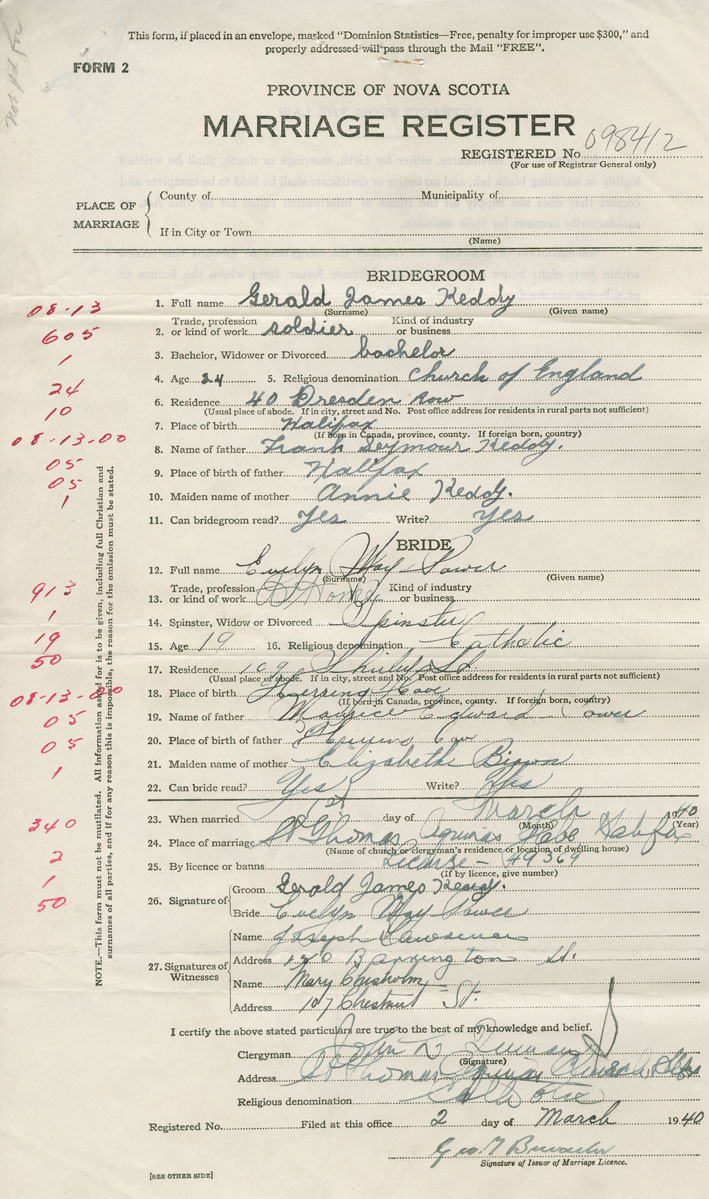 Not pd for
This form, if placed in an envelope, marked "Dominion Statistics—Free, penalty for improper use $300," and
properly addressed will pass through the Mail "FREE".
FORM 2
PROVINCE OF NOVA SCOTIA
MARRIAGE REGISTER
REGISTERED No 098412
(For use of Registrar General only)
PLACE OF MARRIAGE
County of Municipality of
If in City or Town
(Name)
BRIDEGROOM
08-13
1. Full name Gerald James Keddy
(Surname) (Given name)
605
2. Trade, profession or kind of work soldier Kind of industry or business
1
3. Bachelor, Widower or Divorced bachelor
24
4. Age 24 5. Religious denomination Church of England
10
6. Residence 40 Dresden Row
(Usual place of abode. If in city, street and No. Post office address for residents in rural parts not sufficient)
08-13-00
7. Place of birth Halifax
(If born in Canada, province, county. If foreign born, country)
05
8. Name of father Frank Seymour Keddy.
05
9. Place of birth of father Halifax
1
10. Maiden name of mother Annie Keddy.
11. Can bridegroom read? Yes Write? Yes
BRIDE
12. Full name Evelyn May Power
(Surname) (Given name)
913
13. Trade, profession or kind of work At Home Kind of industry or business
1
14. Spinster, Widow or Divorced Spinster
19
15. Age 19 16. Religious denomination Catholic
50
17. Residence 109
(Usual place of abode. If in city, street and No. Post office address for residents in rural parts not sufficient)
08-13-00
18. Place of birth Herring Cove
(If born in Canada, province, county. If foreign born, country)
05
19. Name of father Maurice Edward Power
05
20. Place of birth of father Herring Cove
1
21. Maiden name of mother Elizabeth Brown
22. Can bride read? Yes Write? Yes
23. When married 2 day of March 1940
(Month) (Year)
340
24. Place of marriage St Thomas Aquinas Halifax
(Name of church or clergyman's residence or location of dwelling house)
2
25. By licence or banns License - 49369
(If by licence, give number)
1
50
26. Signature of
Groom Gerald James Keddy.
Bride Evelyn May Power
27. Signatures of Witnesses
Name Joseph
Address 130 Barrington St.
Name Mary Chisholm
Address 107 Chestnut St.
NOTE.—This form must not be mutilated. All information asked for is to be given, including full Christian and
surnames of all parties, and if for any reason this is impossible, the reason for the omission must be stated.
I certify the above stated particulars are true to the best of my knowledge and belief.
Clergyman John
(Signature)
Address St Thomas Aquinas Church, Halifax
Religious denomination Catholic
Registered No. Filed at this office 2 day of March 1940
Geo. T
Signature of Issuer of Marriage Licence.
[SEE OTHER SIDE]